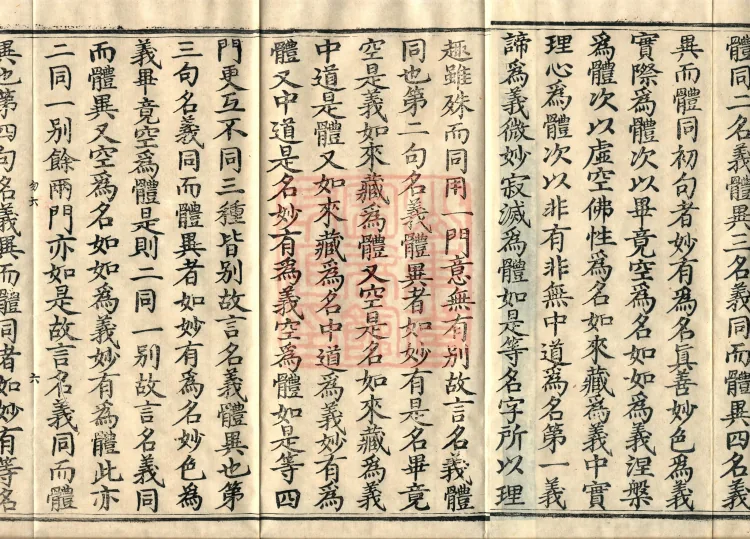 體同二名義體異三名義同而體異四名義
異而體同初句者妙有為名真善妙色為義
實際為體次以畢竟空為名如如為義涅槃
為體次以虛空佛性為名如來藏為義中實
理心為體次以非有非無中道為名第一義
諦為義微妙寂滅為體如是等名字所以理
趣雖殊而同用一門意無有別故言名義體
同也第二句名義體異者如妙有是名畢竟
空是義如來藏為體又空是名如來藏為義
中道是體又如來藏為名中道為義妙有為
體又中道是名妙有為義空為體如是等四
門更互不同三種皆別故言名義體異也第
三句名義同而體異者如妙有為名妙色為
義畢竟空為體是則二同一別故言名義同
而體異又空為名如如為義妙有為體此亦
二同一別餘兩門亦如是故言名義同而體
六
異也第四句名義異而體同者如妙有等名